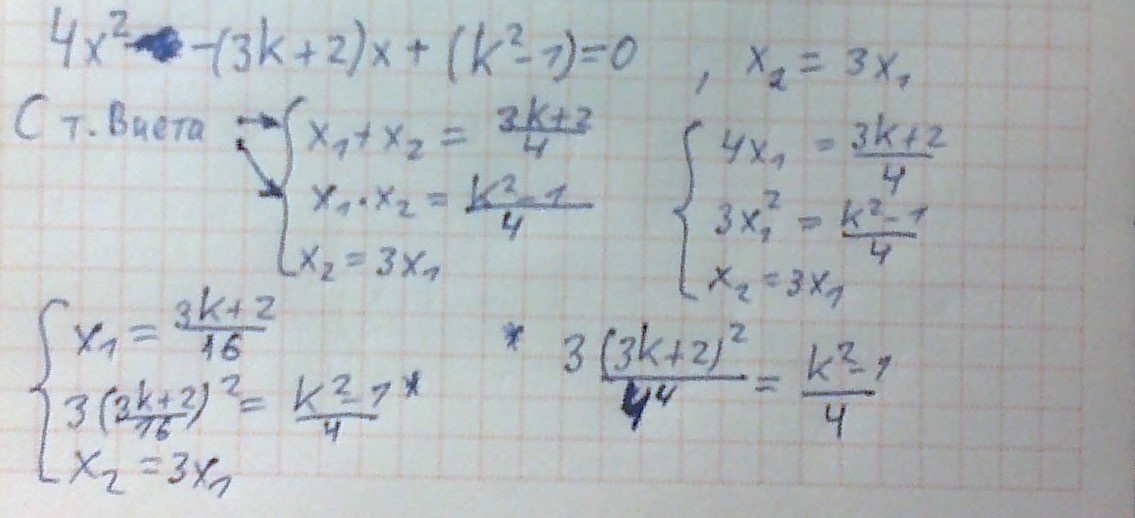 4x² - (3k+2)x + (k²-1) = 0 , x₂ = 3x₁
С т. Виета
x₁ + x₂ = (3k+2)/4
x₁ · x₂ = (k²-1)/4
x₂ = 3x₁
4x₁ = (3k+2)/4
3x₁² = (k²-1)/4
x₂ = 3x₁
x₁ = (3k+2)/16
3((3k+2)/16)² = (k²-1)/4 *
x₂ = 3x₁
* 3(3k+2)²/4⁴ = (k²-1)/4